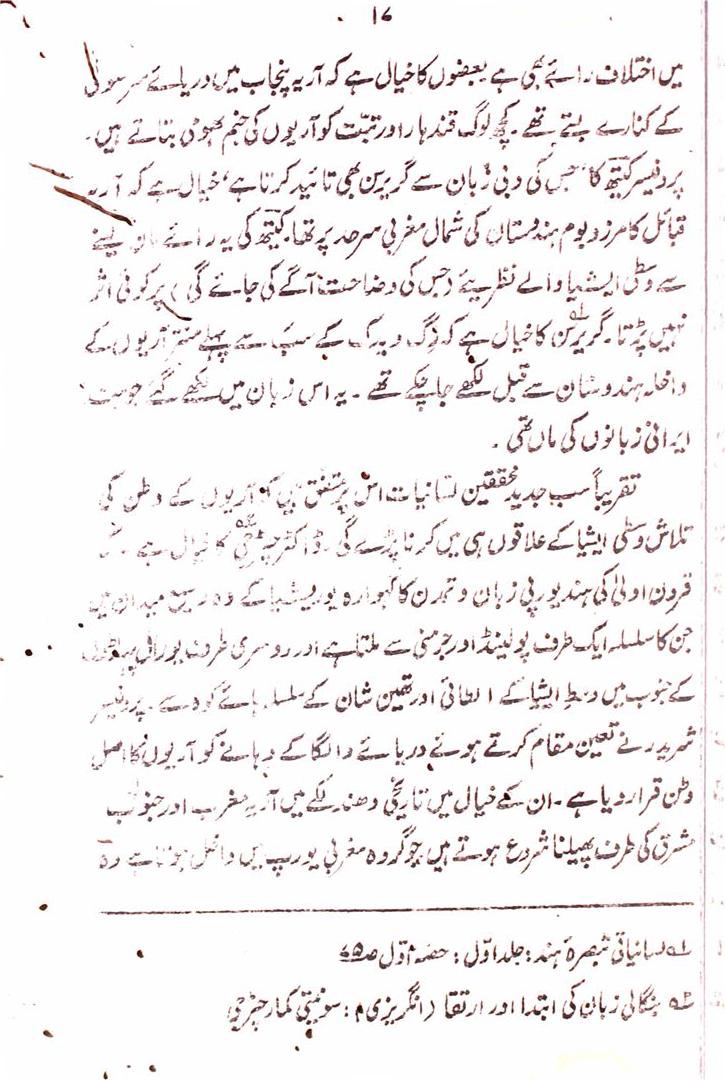 ۱۷
میں اختلاف رائے بھی ہے بعضوں کا خیال ہے کہ آریہ پنجاب میں دریائے سرسوتی
کے کنارے بستے تھے۔ کچھ لوگ قندہار اور تبت کو آریوں کی جنم بھومی بتاتے ہیں۔
پروفیسر کیتھ کا، جس کی دبی زبان سے گریرسن بھی تائید کرتا ہے، خیال ہے کہ آریہ
قبائل کا مرز و بوم ہندوستان کی شمال مغربی سرحد پر تھا۔ کیتھ کی یہ رائے مان لینے
سے وسطی ایشیا والے نظریئے (جس کی وضاحت آگے کی جائے گی) پر کوئی اثر
نہیں پڑتا۔ گریرسن لہ کا خیال ہے کہ رگ وید کے سب سے پہلے منتر آریوں کے
داخلہ ہندوستان سے قبل لکھے جا چکے تھے۔ یہ اس زبان میں لکھے گئے جو ہند
ایرانی زبانوں کی ماں تھی۔
تقریباً سب جدید محققین لسانیات اس پر متفق ہیں کہ آریوں کے وطن کی
تلاش وسطی ایشیا کے علاقوں ہی میں کرنا پڑے گی۔ ڈاکٹر چٹرجی کا خیال ہے کہ
قرون اولیٰ کی ہند یورپی زبان و تمدن کا گہوارہ یوریشیا کے وہ وسیع میدان ہیں
جن کا سلسلہ ایک طرف پولینڈ اور جرمنی سے ملتا ہے اور دوسری طرف یورال پہاڑوں
کے جنوب میں وسط ایشیا کے الطائی اور تھین شان کے سلسلہ ہائے کوہ سے۔ پروفیسر
شریدر نے تعین مقام کرتے ہوئے دریائے والگا کے دہانے کو آریوں کا اصل
وطن قرار دیا ہے۔ ان کے خیال میں تاریخی دھندلکے میں آریہ مغرب اور جنوب
مشرق کی طرف پھیلنا شروع ہوتے ہیں جو گروہ مغربی یورپ میں داخل ہوتا ہے وہ
لہ لسانیاتی تبصرۂ ہند: جلد اول: حصہ اول ص
لہ بنگالی زبان کی ابتدا اور ارتقا (انگریزی): سونیتی کمار چٹرجی